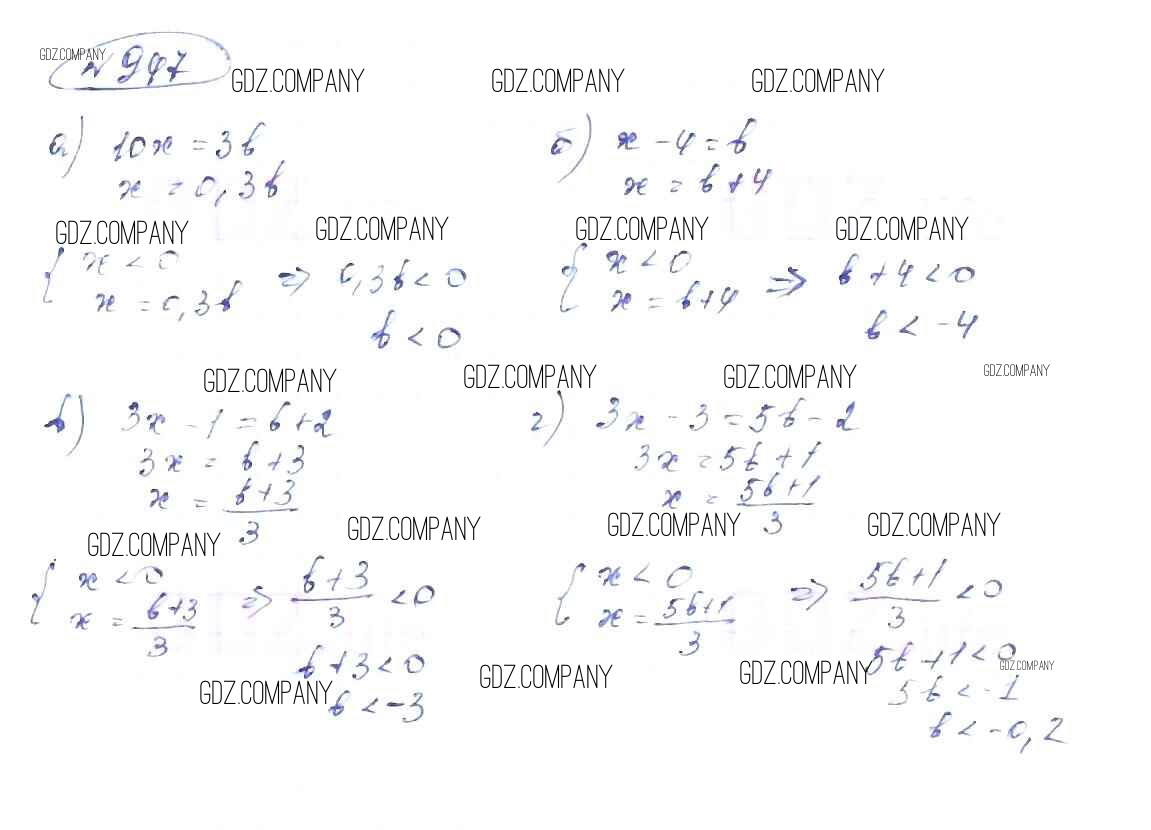 GDZ.COMPANY
№ 947
GDZ.COMPANY GDZ.COMPANY GDZ.COMPANY
а) 10x = 3b
x = 0,3b
б) x - 4 = b
x = b + 4
GDZ.COMPANY GDZ.COMPANY GDZ.COMPANY GDZ.COMPANY
{ x < 0
x = 0,3b
=> 0,3b < 0
b < 0
{ x < 0
x = b+4
=> b + 4 < 0
b < -4
GDZ.COMPANY GDZ.COMPANY GDZ.COMPANY GDZ.COMPANY
в) 3x - 1 = b + 2
3x = b + 3
x = (b+3)/3
г) 3x - 3 = 5b - 2
3x = 5b + 1
x = (5b+1)/3
GDZ.COMPANY GDZ.COMPANY GDZ.COMPANY GDZ.COMPANY
{ x < 0
x = (b+3)/3
=> (b+3)/3 < 0
b + 3 < 0
b < -3
{ x < 0
x = (5b+1)/3
=> (5b+1)/3 < 0
5b + 1 < 0
5b < -1
b < -0,2
GDZ.COMPANY GDZ.COMPANY GDZ.COMPANY GDZ.COMPANY